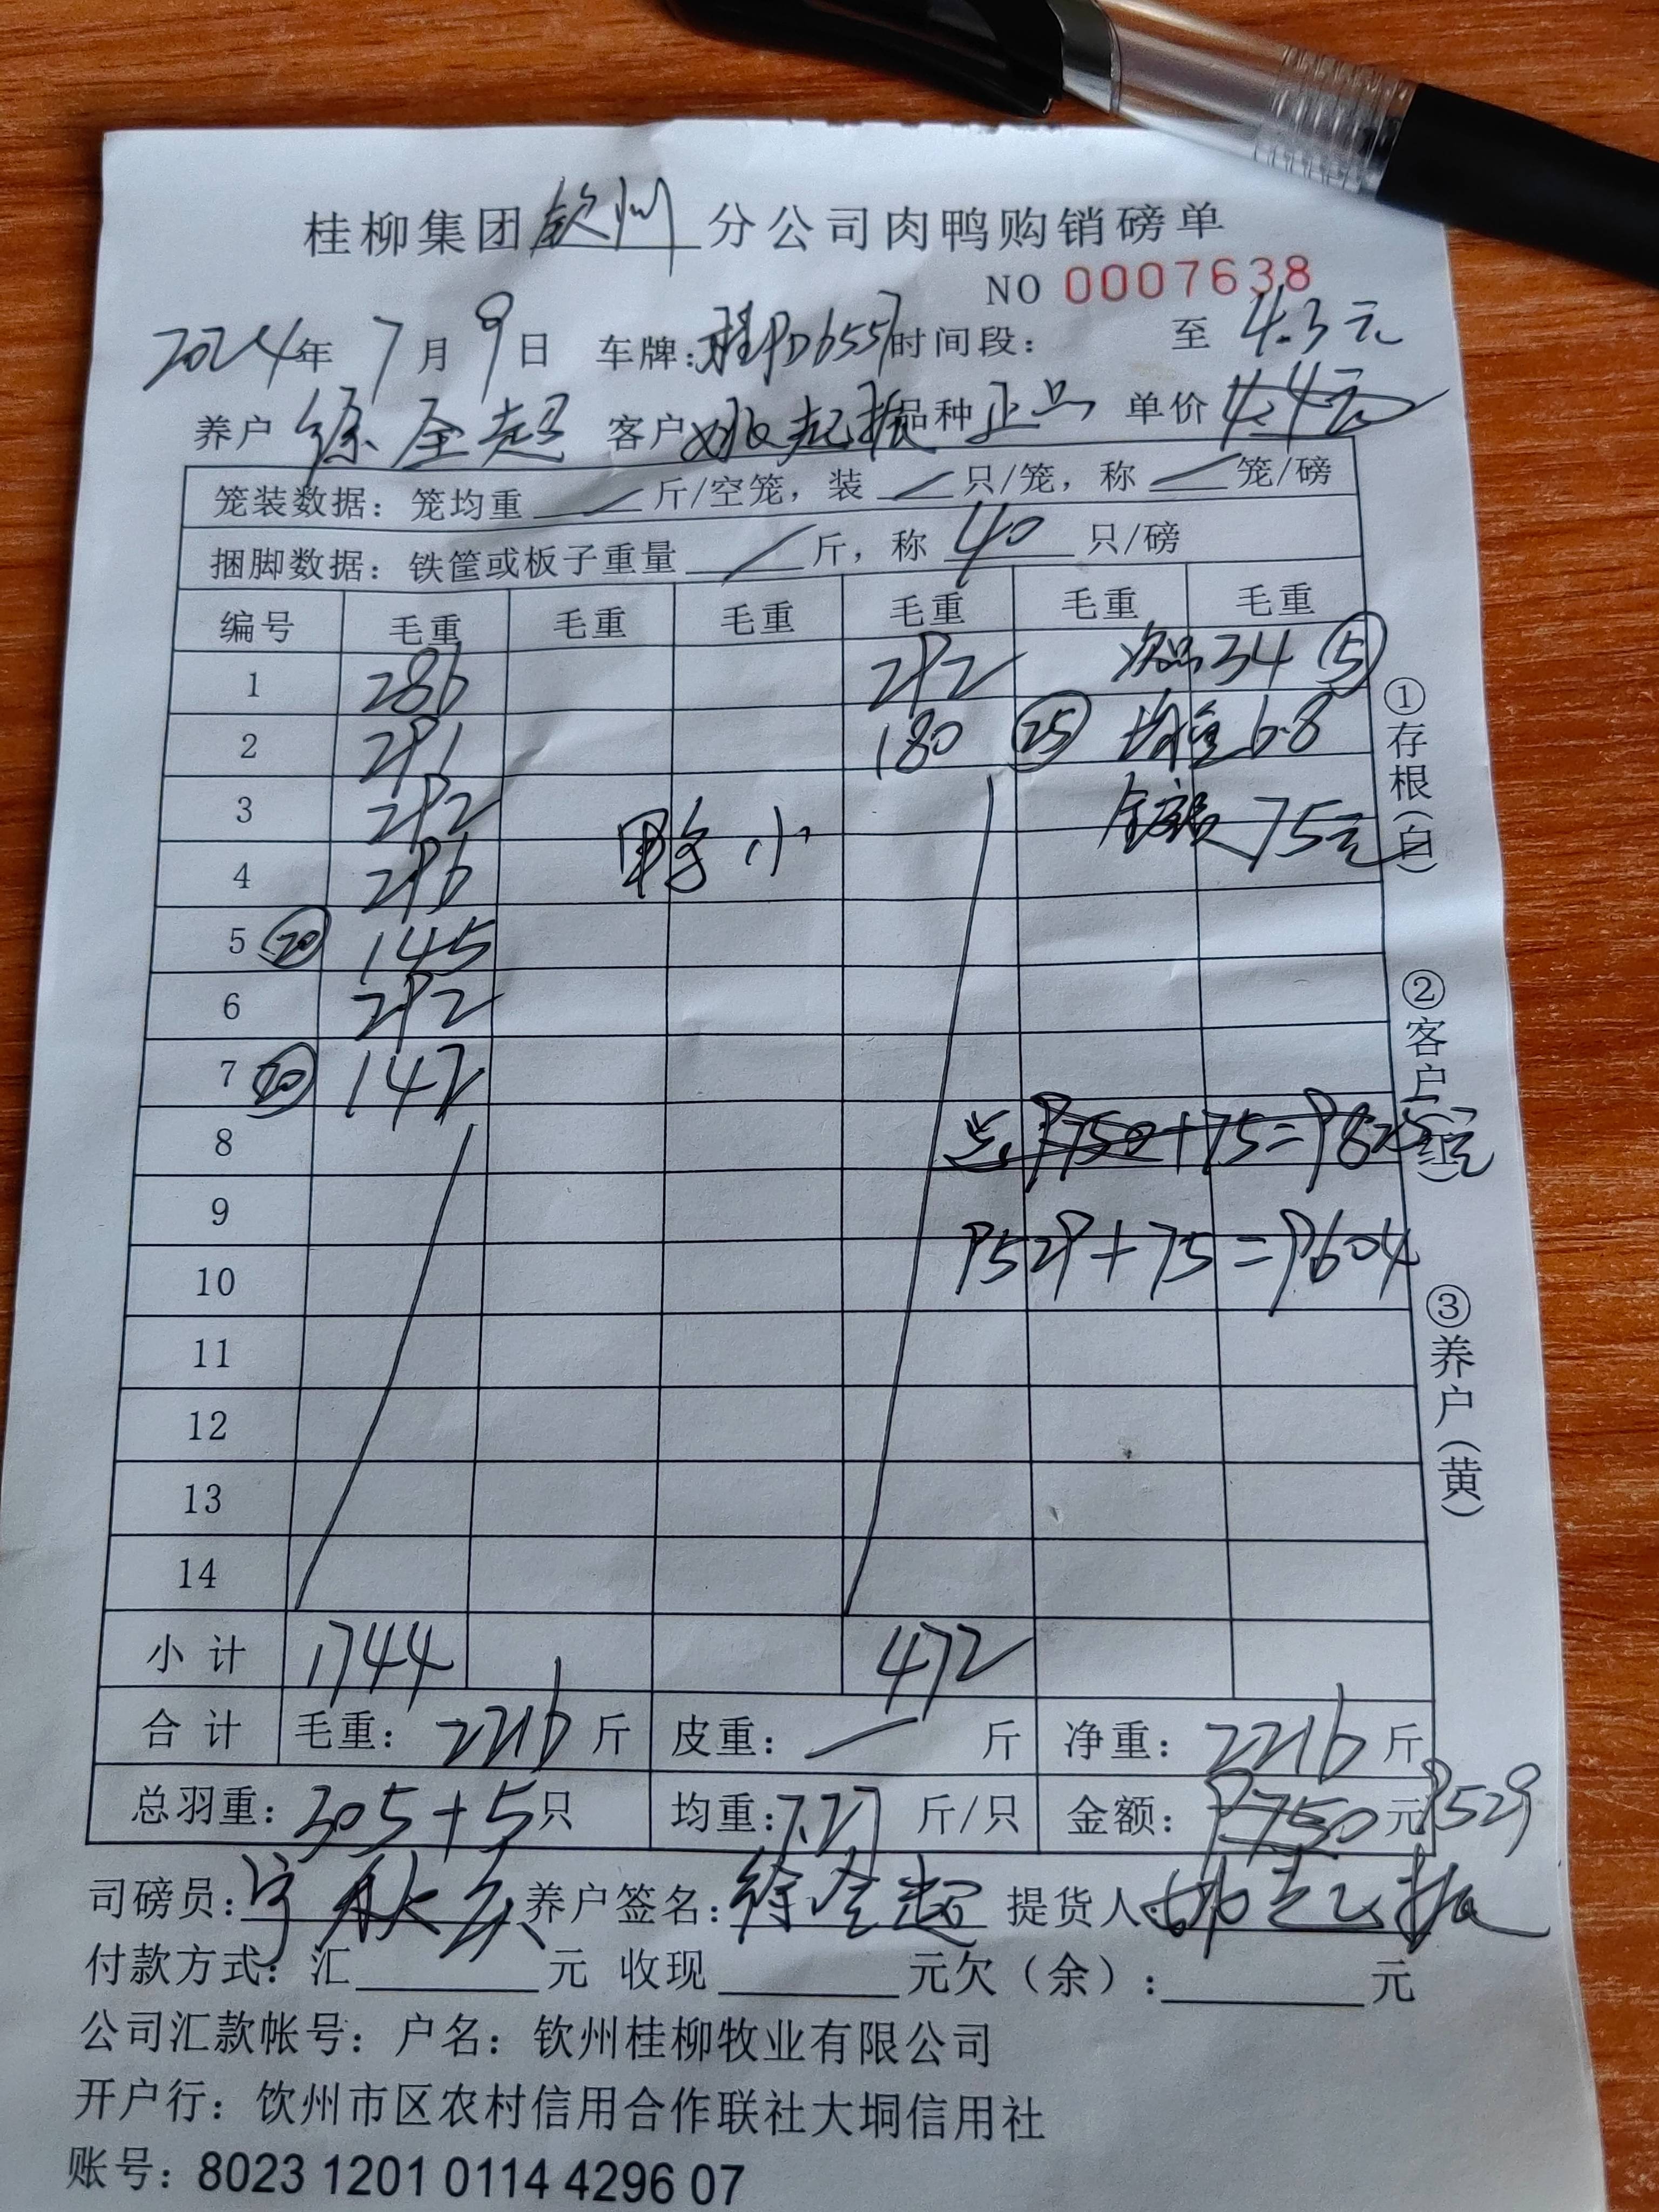 桂柳集团钦州分公司肉鸭购销磅单
NO 0007638
2024年 7月 9日 车牌:桂PD6557时间段: 至 4.3元
养户 徐全超 客户 姚起振 品种 正品 单价 4.4元
笼装数据: 笼均重 / 斤/空笼, 装 / 只/笼, 称 / 笼/磅
捆脚数据: 铁筐或板子重量 / 斤, 称 40 只/磅
编号 毛重 毛重 毛重 毛重 毛重 毛重
1 286 292 次品34 ⑤
2 291 180 ㉕ 均重6.8
3 292 鸭小 金额75元
4 296
5 ⑳ 145
6 292
7 ⑳ 142
8 总9750+75=9825元
9 9529+75=9604
10
11
12
13
14
小计 1744 472
合计 毛重: 2216 斤 皮重: / 斤 净重: 2216 斤
总羽重: 305+5只 均重: 7.27 斤/只 金额: 9750元 9529
司磅员: 养户签名: 徐全超 提货人 姚起振
付款方式: 汇 元 收现 元欠（余）: 元
公司汇款帐号: 户名: 钦州桂柳牧业有限公司
开户行: 饮州市区农村信用合作联社大垌信用社
账号: 8023 1201 0114 4296 07
①存根（白）
②客户（红）
③养户（黄）